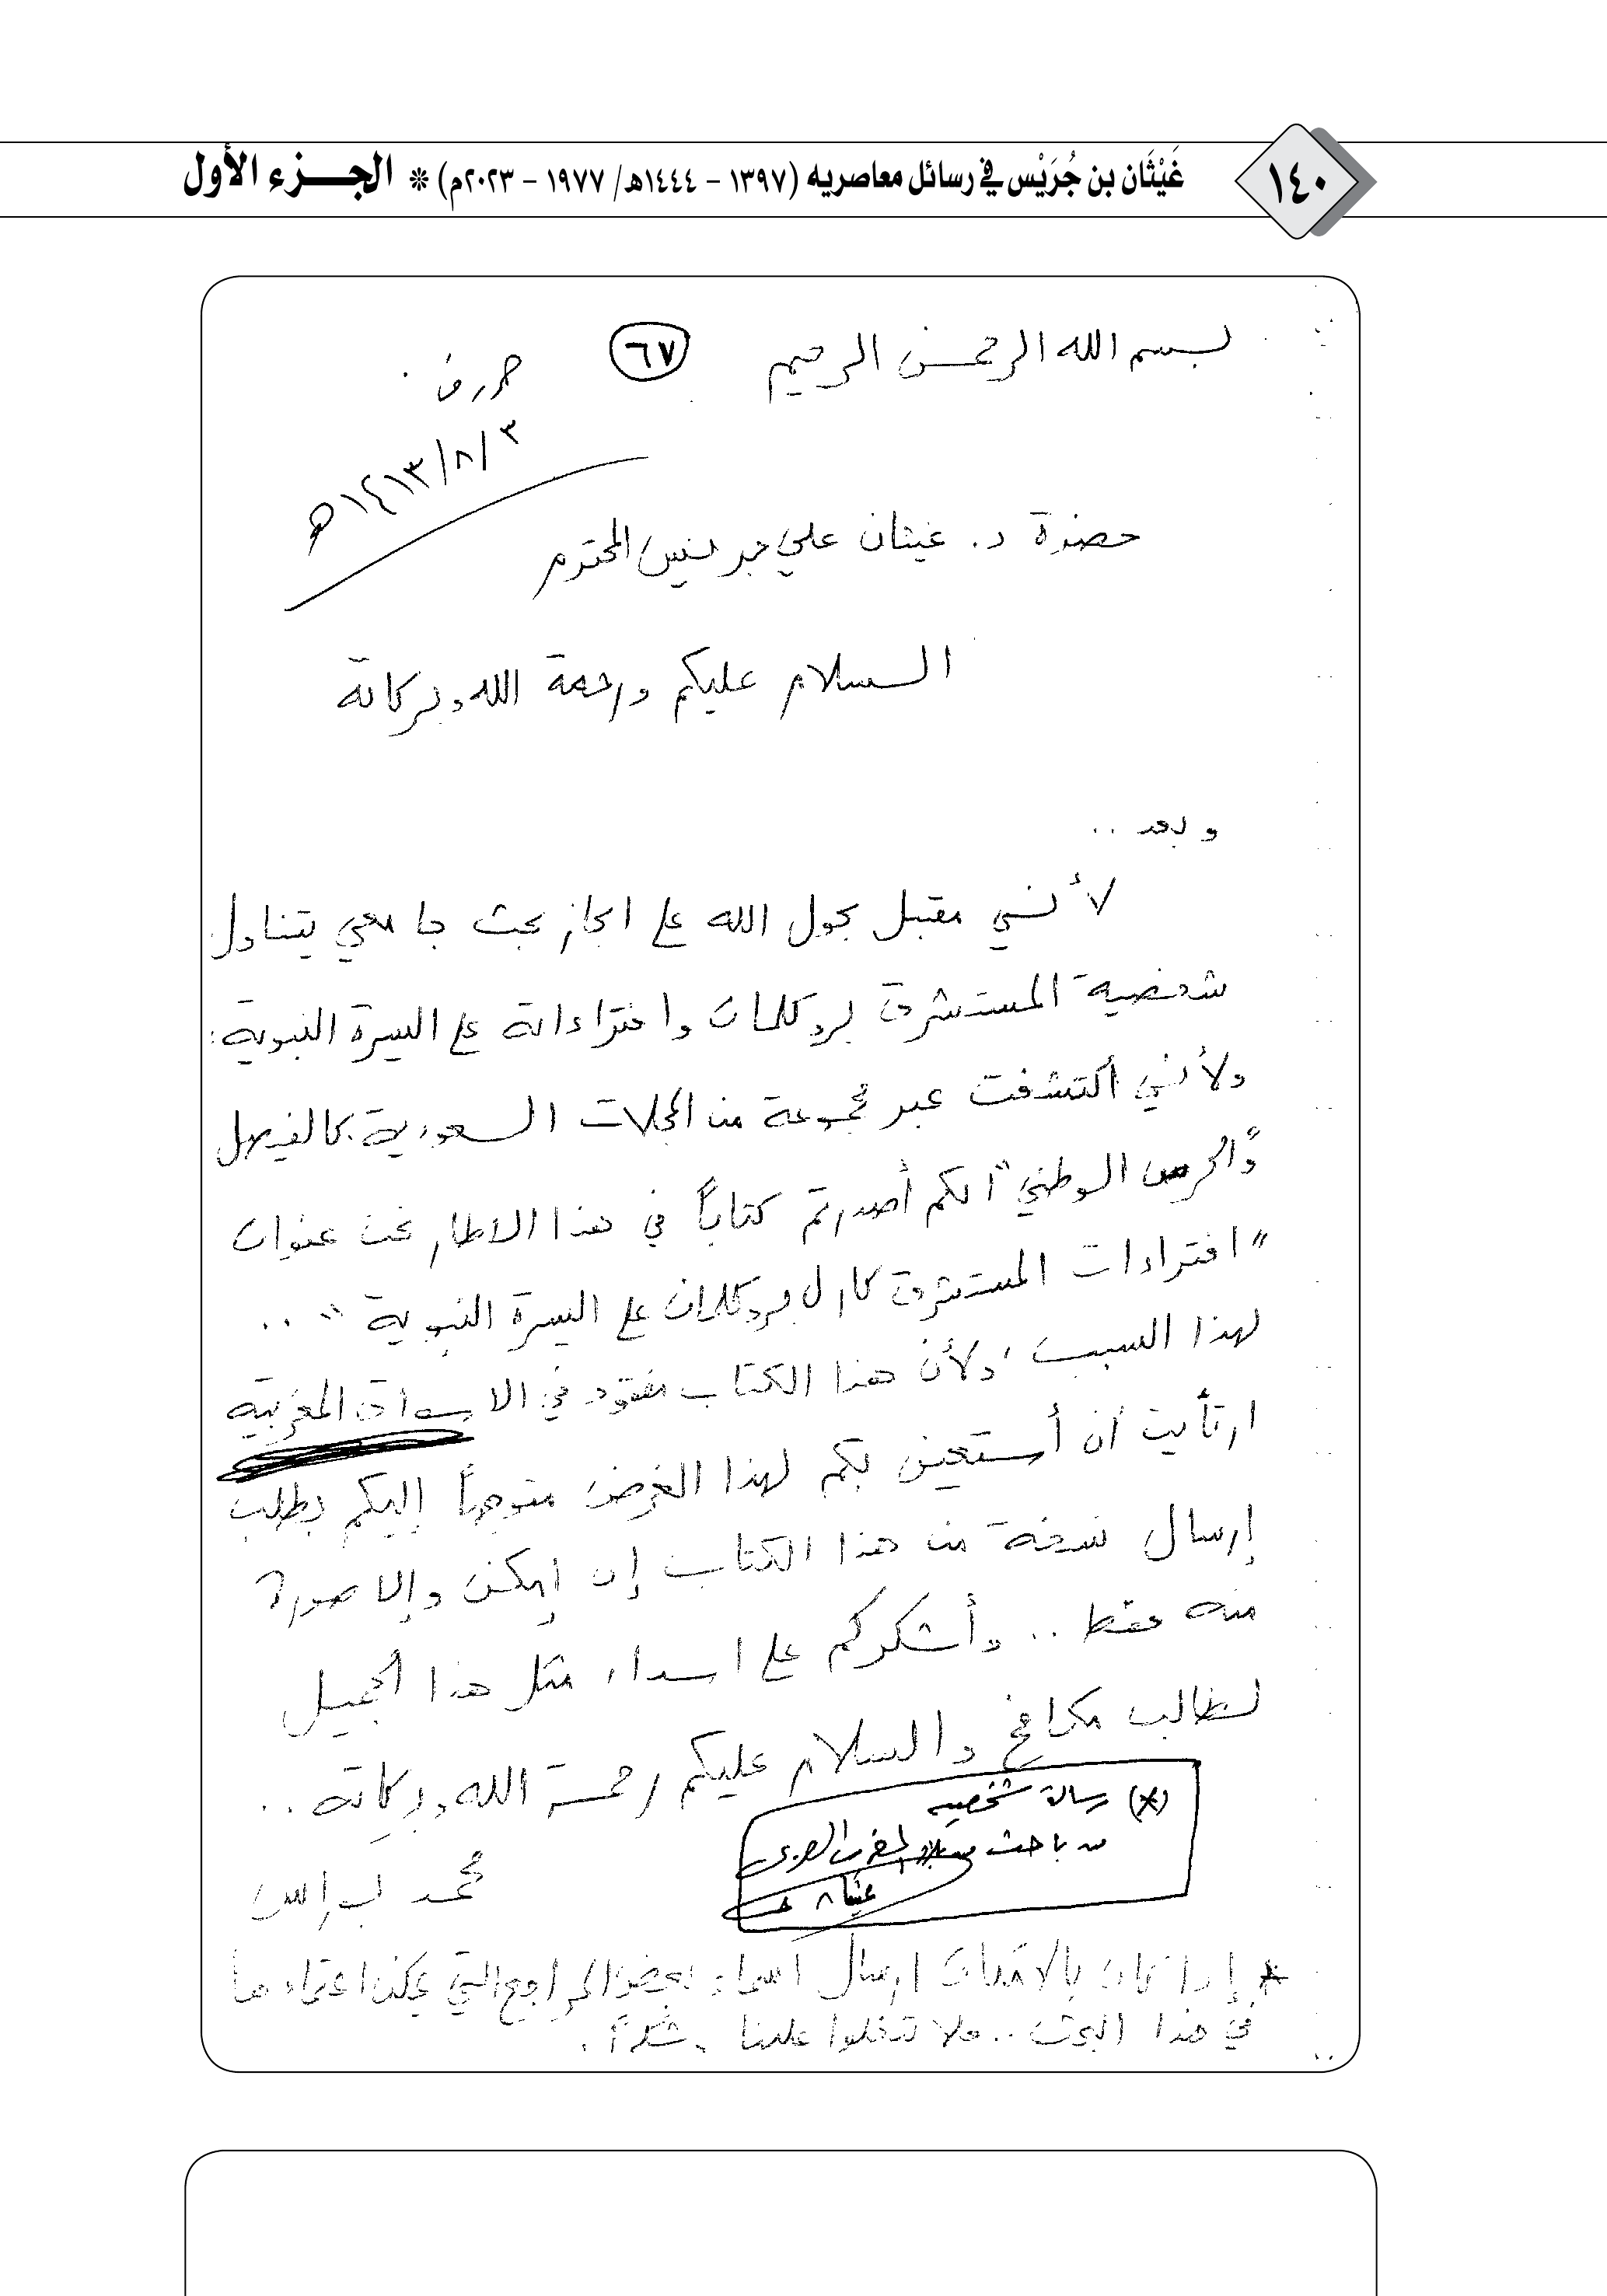 ١٤٠
غَيْثَان بن جُرَيْس في رسائل معاصريه (١٣٩٧ - ١٤٤٤هـ/ ١٩٧٧ - ٢٠٢٣م) * الجـــزء الأول
بسم الله الرحمن الرحيم
٦٧
٣/٨/١٤١٣هـ
حضرة د. غيثان علي جريس المحترم
السلام عليكم ورحمة الله وبركاته
وبعد ..
لأنني مقبل بحول الله على انجاز بحث جامعي يتناول
شخصية المستشرق بروكلمان وافتراءاته على السيرة النبوية:
ولأنني أكتشفت عبر مجموعة من المجلات السعودية كالفيصل
و"الحرس الوطني" انكم أصدرتم كتاباً في هذا الاطار تحت عنوان
"افتراءات المستشرق كارل بروكلمان على السيرة النبوية" ..
لهذا السبب، ولأن هذا الكتاب مفقود في الاسواق المغربية
ارتأيت أن أستعين بكم لهذا الغرض متوجهاً إليكم بطلب
إرسال نسخة من هذا الكتاب إن أمكن وإلا صورة
منه فقط .. وأشكركم على اسداء مثل هذا الجميل
لطالب مكافح والسلام عليكم رحمة الله وبركاته ..
(*) رسالة شخصيه
من باحث من بلاد المغرب العربي
غيثان
محمد
* إذا كان بالامكان ارسال اسماء بعض المراجع التي يمكن اعتمادها
في هذا البحث .. فلا تبخلوا علينا وشكراً.